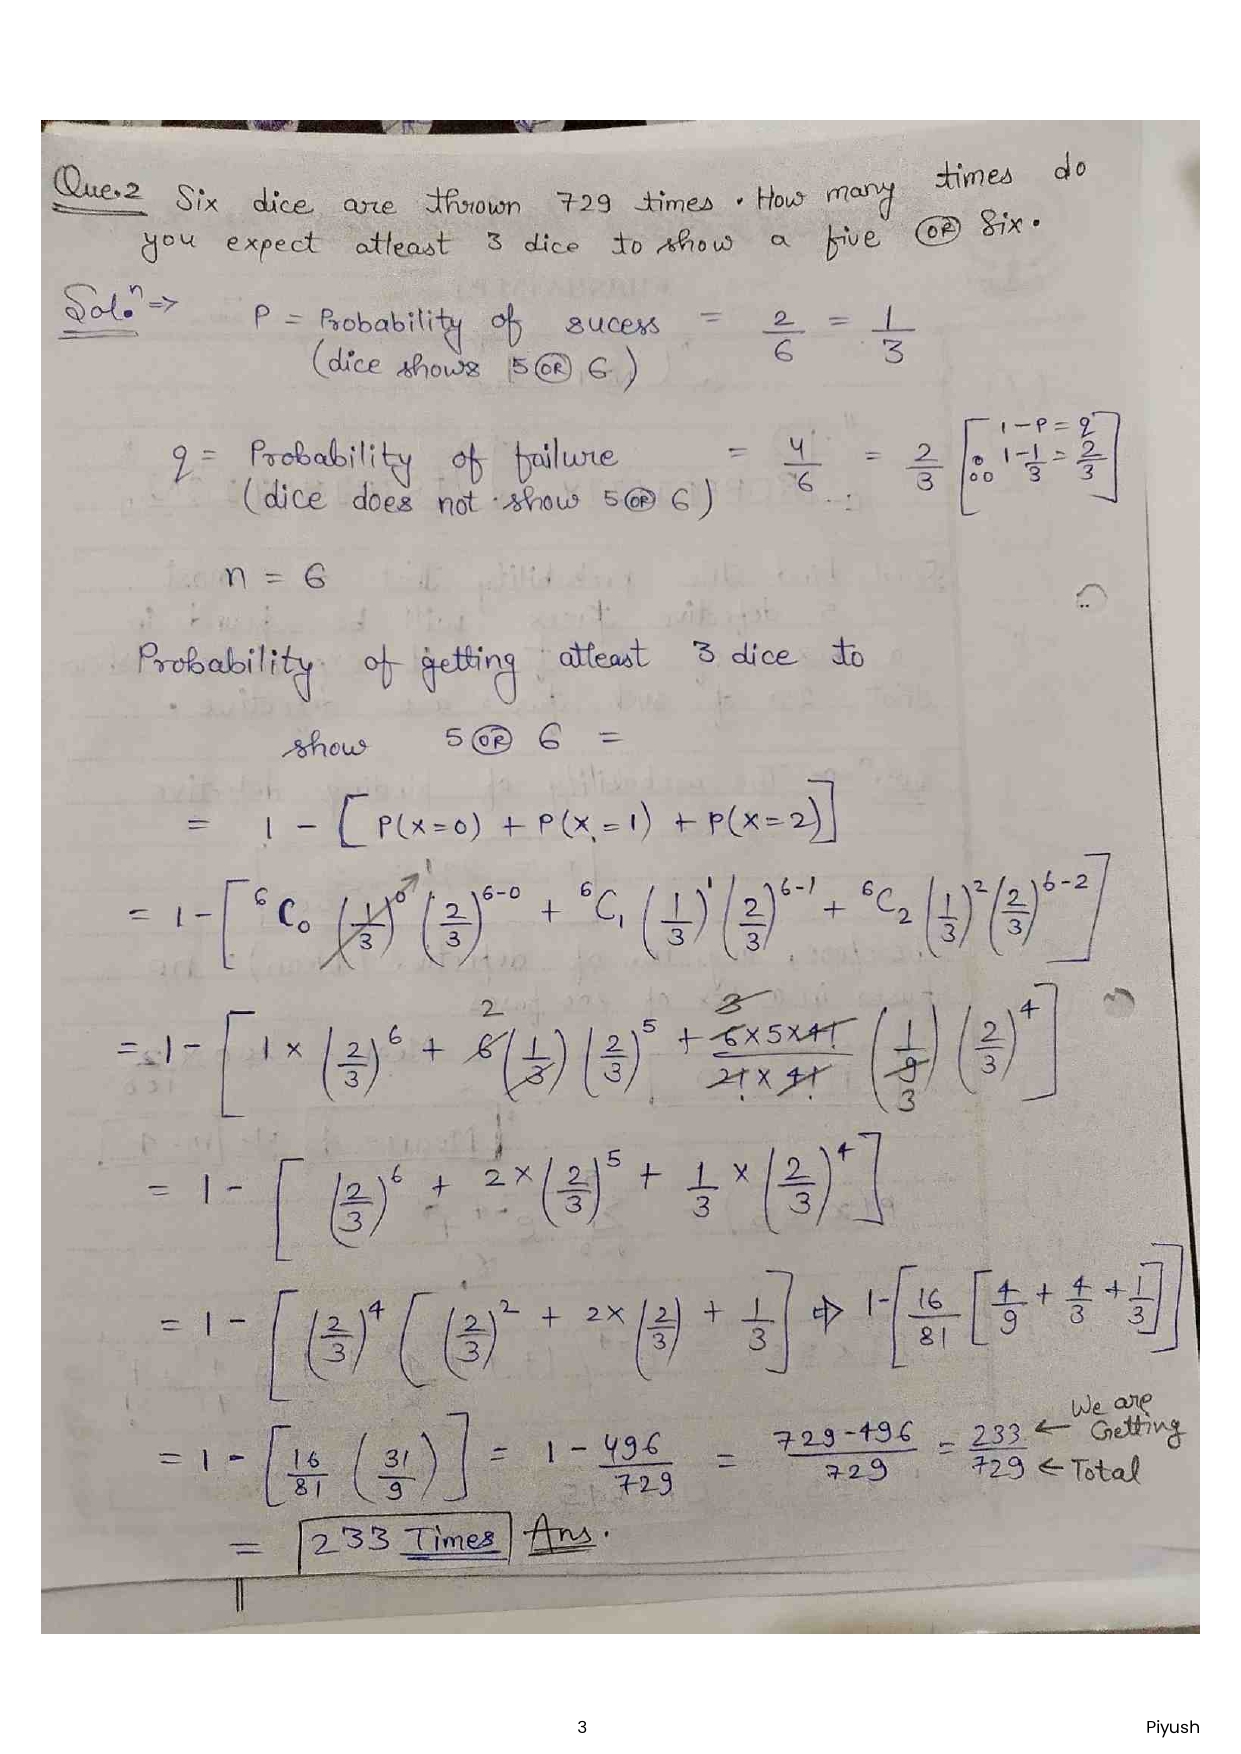 Que.2 Six dice are thrown 729 times. How many times do
you expect atleast 3 dice to show a five OR Six.
Sol.ⁿ => P = Probability of sucess = 2/6 = 1/3
(dice shows 5 OR 6)
q = Probability of failure = 4/6 = 2/3 [1-P = q
(dice does not show 5 OR 6) ∴ 1-1/3 = 2/3]
n = 6
Probability of getting atleast 3 dice to
show 5 OR 6 =
= 1 - [P(x=0) + P(x=1) + P(x=2)]
= 1 - [⁶C₀ (1/3)⁰ (2/3)⁶⁻⁰ + ⁶C₁ (1/3)¹ (2/3)⁶⁻¹ + ⁶C₂ (1/3)² (2/3)⁶⁻²]
= 1 - [1 × (2/3)⁶ + 6 (1/3) (2/3)⁵ + 6×5×4!/2!×4! (1/9) (2/3)⁴]
= 1 - [(2/3)⁶ + 2×(2/3)⁵ + 1/3 × (2/3)⁴]
= 1 - [(2/3)⁴ ((2/3)² + 2×(2/3) + 1/3] ⇒ 1-[16/81 [4/9 + 4/3 + 1/3]]
= 1 - [16/81 (31/9)] = 1 - 496/729 = 729-496/729 = 233/729 ← We are Getting ← Total
= 233 Times Ans.
3 Piyush